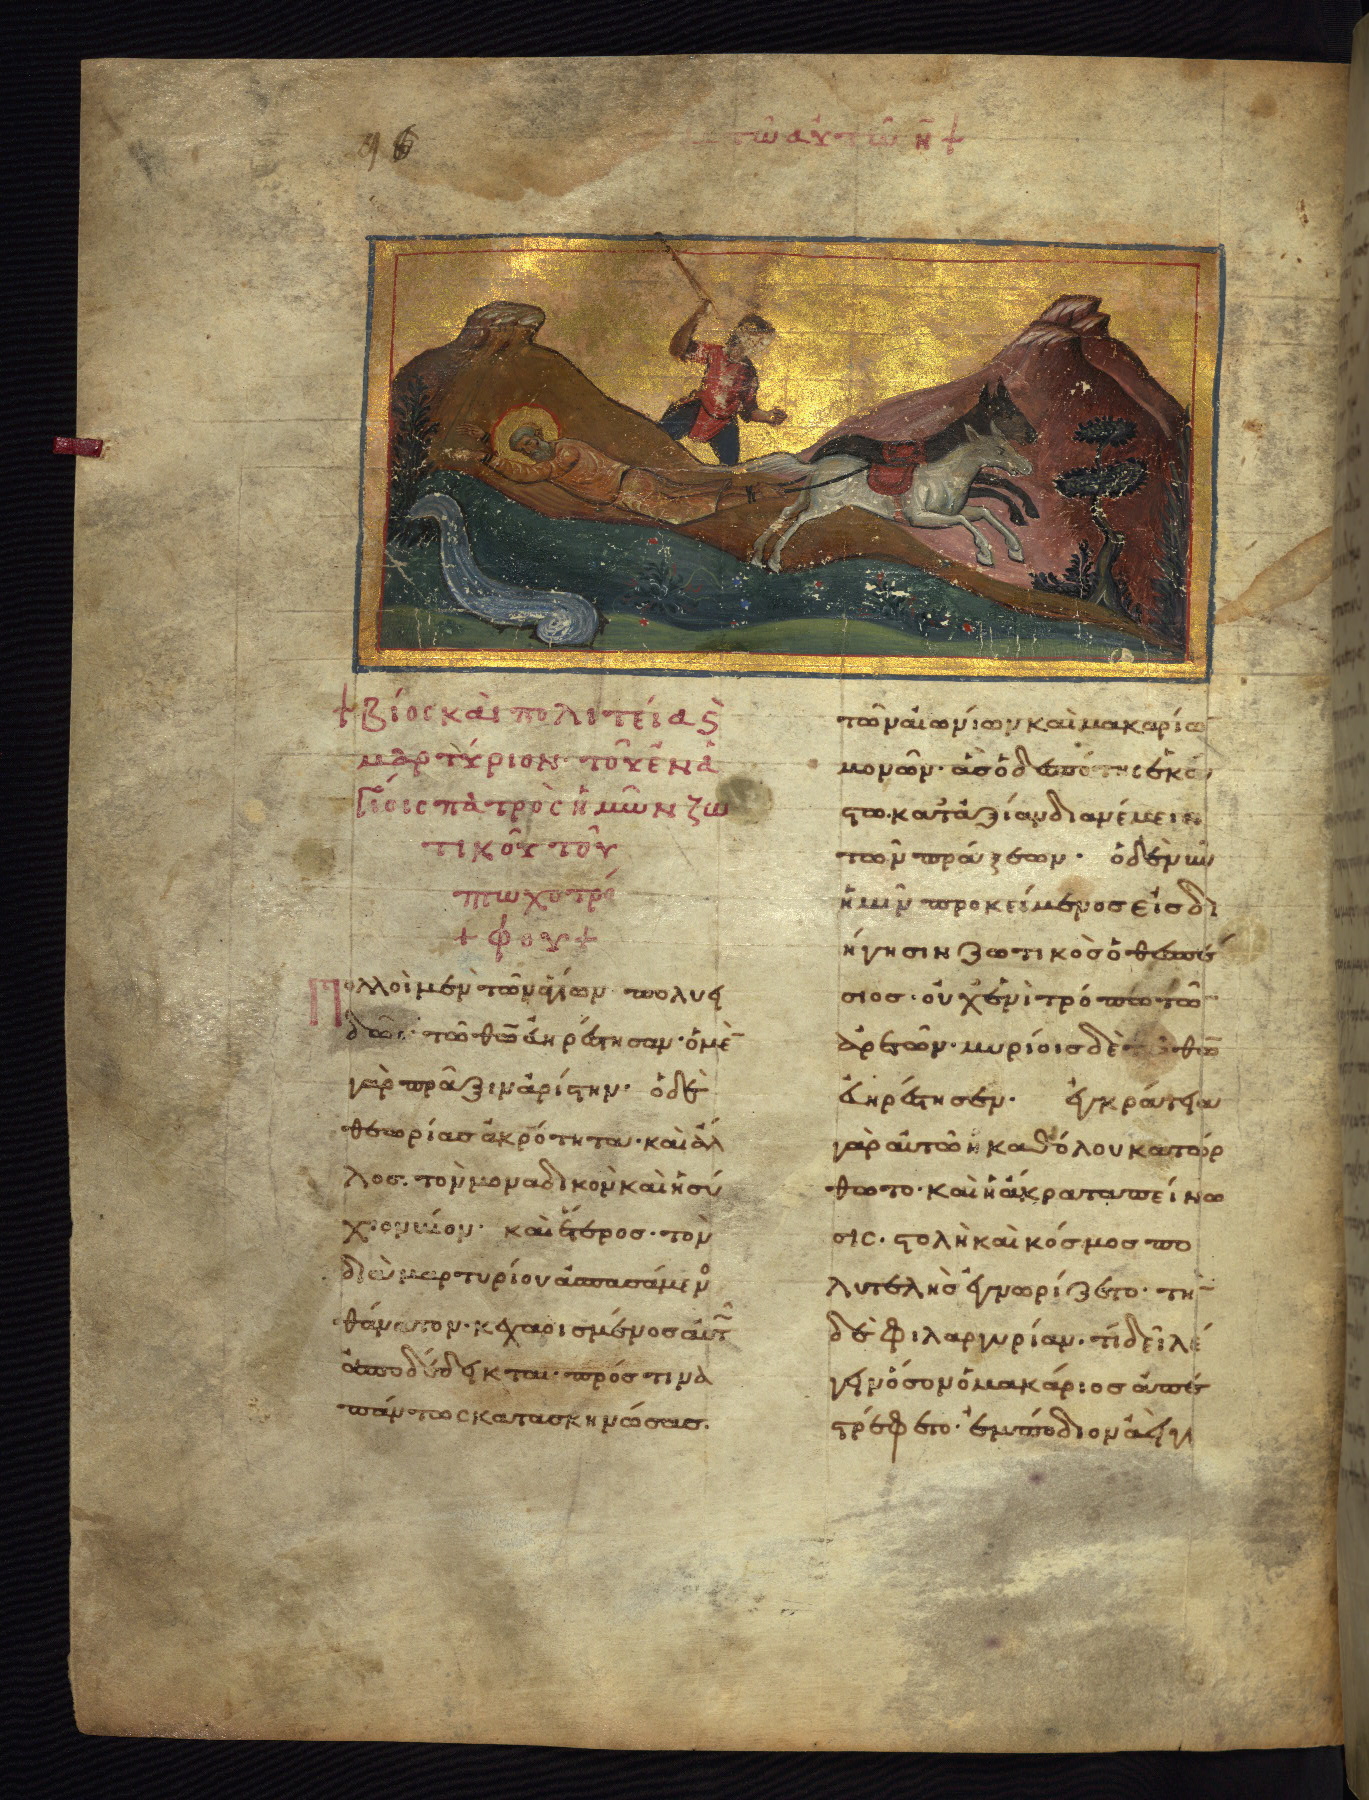 96
τῶ αὐτῶ μ̅
+ βίος καὶ πολιτεία ϛ̀
μαρτύριον τοῦ ἐν ἁ
γίοις πατρὸς ἡμῶν ζω
τικοῦ τοῦ
πτωχοτρό
+ φου +
Πολλοὶ μὲν τῶν ἁγίων πολυει
δῶς τῶ θ̅ω̅ εὐηρέστησαν· ὁ μὲ̅
γὰρ πρᾶξιν ἀρίστην· ὁ δὲ
θεωρίας ἀκρότητα· καὶ ἄλ
λος· τὸν μοναδικὸν καὶ ἡσύ
χιον βίον· καὶ ἕτερος· τὸν
διὰ μαρτυρίου ἀσπασάμεν
θάνατον· κεχαρισμένος αὐτ
ἀποδέδεκται· πρός τινα
πάντως κατασκηνώσας·
τῶν αἰωνίων καὶ μακαρίω̅
μονῶν· ἃς ὁ δεσπότης ἑκά
στω· κατ' ἀξίαν διανέμει
τῶν πράξεων· ὁ δὲ νῦν
ἡμῖν προκείμενος εἰς δι
ήγησιν ζωτικὸς ὁ θεσπέ
σιος· οὐχ ἑνὶ τρόπω τῶ̅
ἀρετῶν· μυρίοις δὲ τῶ θ̅ω̅
εὐηρέστησεν· ἐγκράτεια
γὰρ αὐτῶ ἡ καθόλου κατώρ
θωτο· καὶ ἡ ἄκρα ταπείνω
σις· στολὴ καὶ κόσμος πο
λυτελὴς ἐγνωρίζετο· τὴ̅
δὲ φιλαργυρίαν· τί δεῖ λέ
γειν ὅσον ὁ μακάριος ἀπε
στρέφετο· ἐμπόδιον ἀεὶ